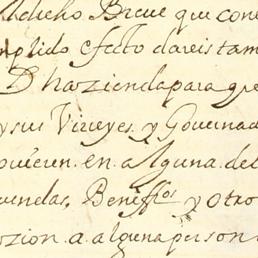 dicho Breue que con
mplido efecto dareis tam
D haziendapara que
ysus Virreyes y Governad
ouieren en alguna del
uendas, Beneffos y otro
azion a alguna person